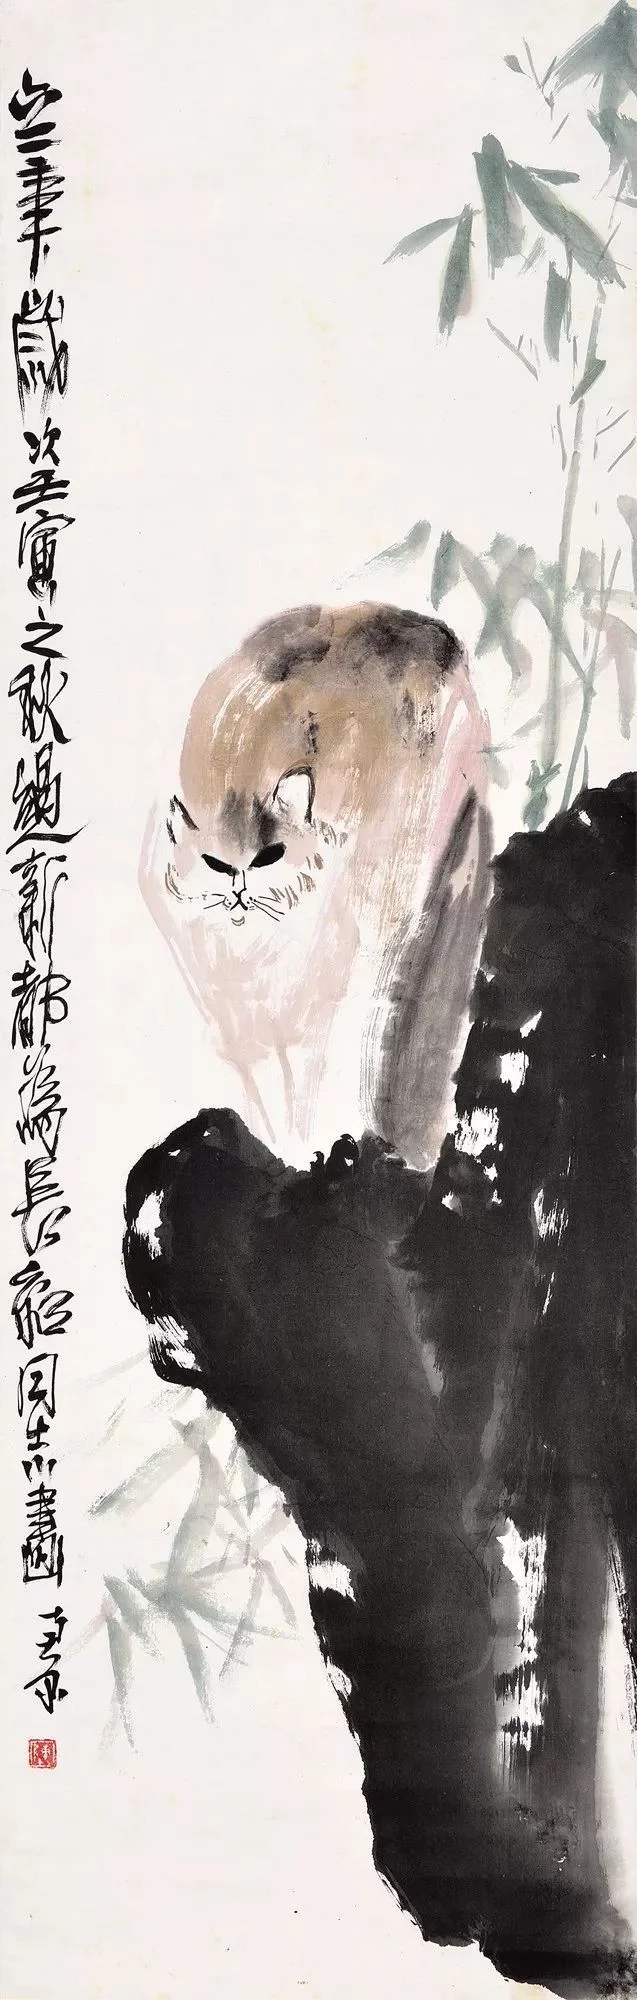 六二年歲次壬寅之秋過新都為長同志畫 南原